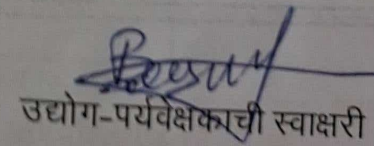 उद्योग-पर्यवेक्षकाची स्वाक्षरी